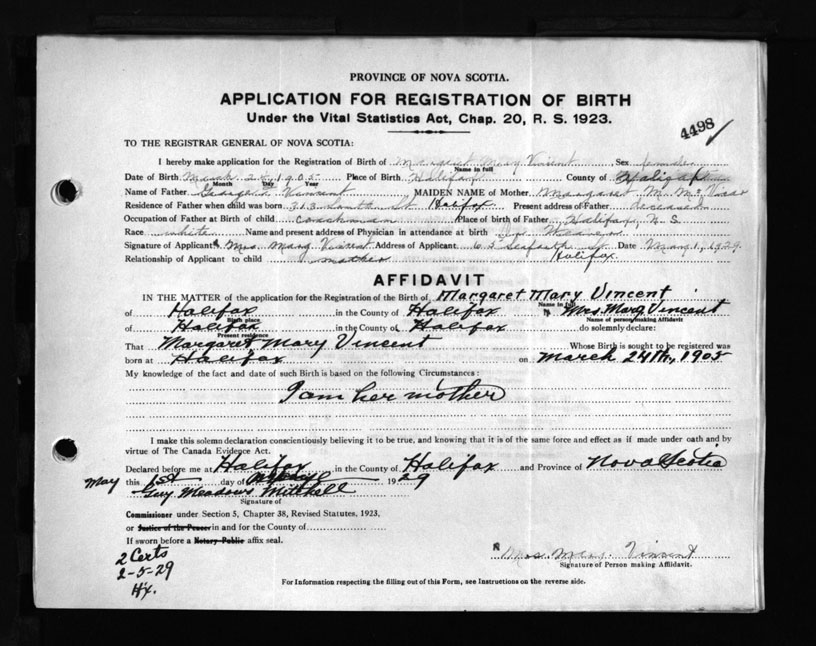 PROVINCE OF NOVA SCOTIA.
APPLICATION FOR REGISTRATION OF BIRTH
Under the Vital Statistics Act, Chap. 20, R. S. 1923.
4498
TO THE REGISTRAR GENERAL OF NOVA SCOTIA:
I hereby make application for the Registration of Birth of Margaret Mary Vincent Sex female
Name in full
Date of Birth March 1905 Place of Birth Halifax County of Halifax
Month Day Year
Name of Father Vincent MAIDEN NAME of Mother Margaret M.
Residence of Father when child was born 313 South St Halifax Present address of Father deceased
Occupation of Father at Birth of child coachman Place of birth of Father Halifax, N. S.
Race white Name and present address of Physician in attendance at birth Dr.
Signature of Applicant Mrs Mary Vincent Address of Applicant 65 Seaforth St Date May 1, 1929
Relationship of Applicant to child mother Halifax
AFFIDAVIT
IN THE MATTER of the application for the Registration of the Birth of Margaret Mary Vincent
Name in full
of Halifax in the County of Halifax Mrs. Mary Vincent
Birth place Name of person making Affidavit
of Halifax in the County of Halifax do solemnly declare:
Present residence
That Margaret Mary Vincent Whose Birth is sought to be registered was
born at Halifax on March 24th, 1905
My knowledge of the fact and date of such Birth is based on the following Circumstances:
I am her mother
I make this solemn declaration conscientiously believing it to be true, and knowing that it is of the same force and effect as if made under oath and by
virtue of The Canada Evidence Act.
Declared before me at Halifax in the County of Halifax and Province of Nova Scotia
May this 1st day of 1929
Meadows Mitchell
Signature of
Commissioner under Section 5, Chapter 38, Revised Statutes, 1923,
or Justice of the Peace in and for the County of
If sworn before a Notary Public affix seal.
2 Certs
2-5-29
Hx.
Mrs Vincent
Signature of Person making Affidavit.
For Information respecting the filling out of this Form, see Instructions on the reverse side.